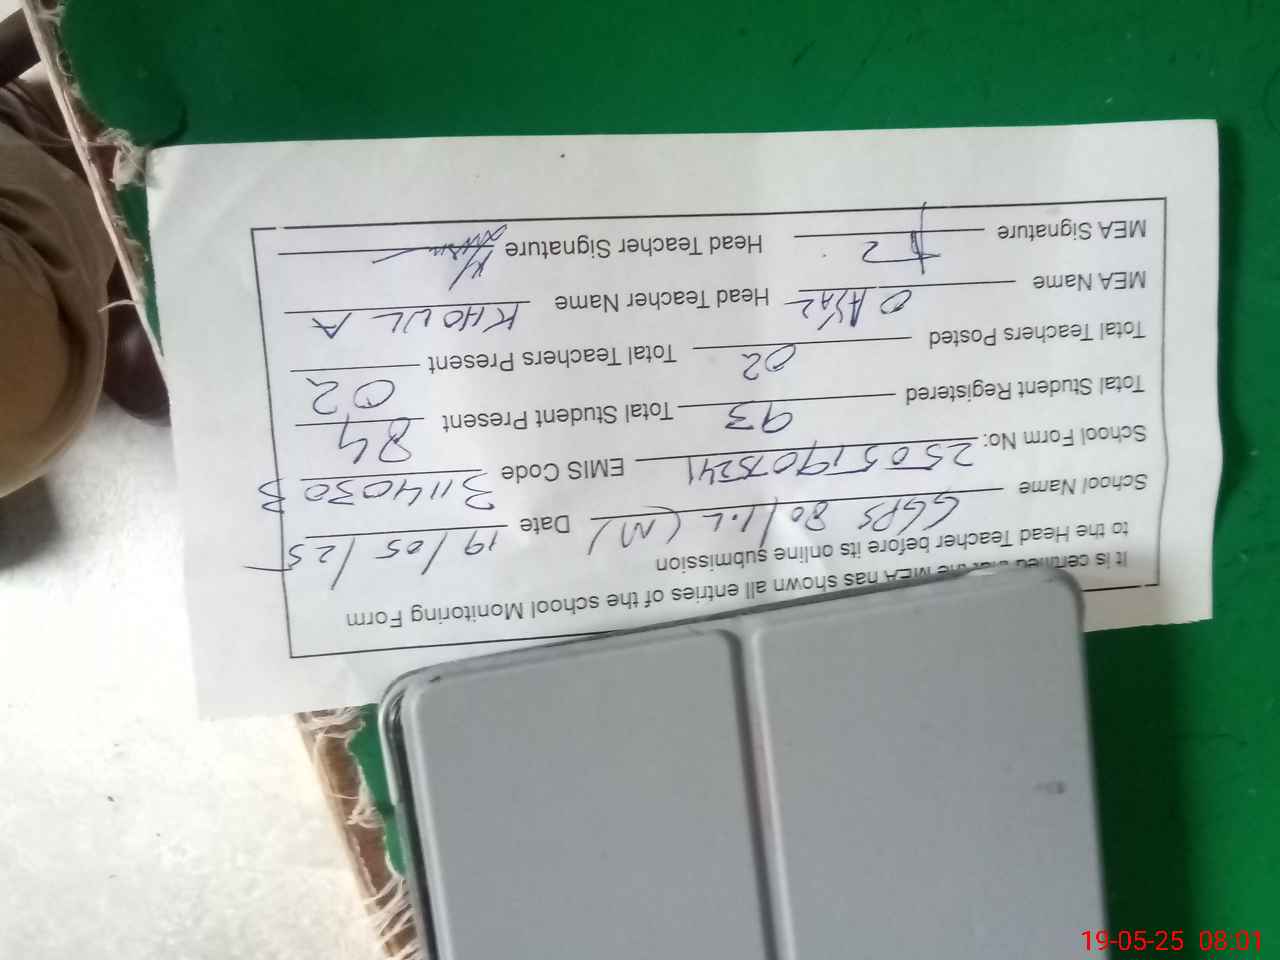 It is certified that the MEA has shown all entries of the school Monitoring Form
to the Head Teacher before its online submission
School Name GGPS 80/1.L (M) Date 19/05/25
School Form No: 250519075241 EMIS Code 31140303
Total Student Registered 93 Total Student Present 84
Total Teachers Posted 02 Total Teachers Present 02
MEA Name Head Teacher Name KHOULA
MEA Signature Head Teacher Signature
19-05-25 08:01